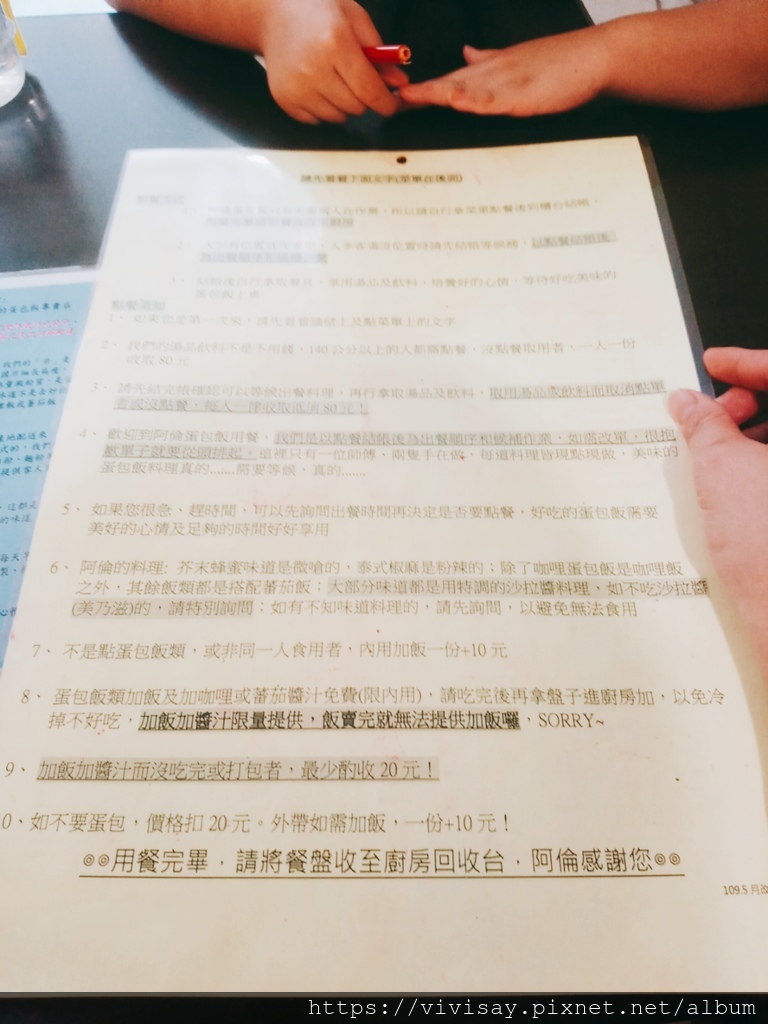 請先看看下面文字(菜單在後面)
人在作業，所以請自行拿菜單點餐後到櫃台結帳，
2、
人滿沒位置時請先結帳等候補，以點餐結帳後
3、結帳後自行拿取餐具，享用湯品及飲料，培養好的心情，等待好吃美味的
蛋包飯上桌
1、如果您是第一次來，請先看看牆壁上及點菜單上的文字
2、我們的湯品飲料不是不用錢，140公分以上的人都需點餐，沒點餐取用者，一人一份
收取80元
3、請先結完帳確認可以等候出餐料理，再行拿取湯品及飲料，取用湯品或飲料而取消點單
者或沒點餐，每人一律收取低消80元！
4、歡迎到阿倫蛋包飯用餐，我們是以點餐結帳後為出餐順序和候補作業，如需改單，很抱
歉單子就要從頭排起，這裡只有一位師傅、兩隻手在做，每道料理皆現點現做，美味的
蛋包飯料理真的……需要等候，真的……
5、如果您很急、趕時間，可以先詢問出餐時間再決定是否要點餐，好吃的蛋包飯需要
美好的心情及足夠的時間好好享用
6、阿倫的料理: 芥末蜂蜜味道是微嗆的，泰式椒麻是粉辣的；除了咖哩蛋包飯是咖哩飯
之外，其餘飯類都是搭配蕃茄飯；大部分味道都是用特調的沙拉醬料理，如不吃沙拉醬
(美乃滋)的，請特別詢問；如有不知味道料理的，請先詢問，以避免無法食用
7、不是點蛋包飯類，或非同一人食用者，內用加飯一份+10元
8、蛋包飯類加飯及加咖哩或蕃茄醬汁免費(限內用)，請吃完後再拿盤子進廚房加，以免冷
掉不好吃，加飯加醬汁限量提供，飯賣完就無法提供加飯囉，SORRY~
9、加飯加醬汁而沒吃完或打包者，最少酌收20元！
0、如不要蛋包，價格扣20元。外帶如需加飯，一份+10元！
◎◎用餐完畢，請將餐盤收至廚房回收台，阿倫感謝您◎◎
109.5月改
https://vivisay.pixnet.net/album